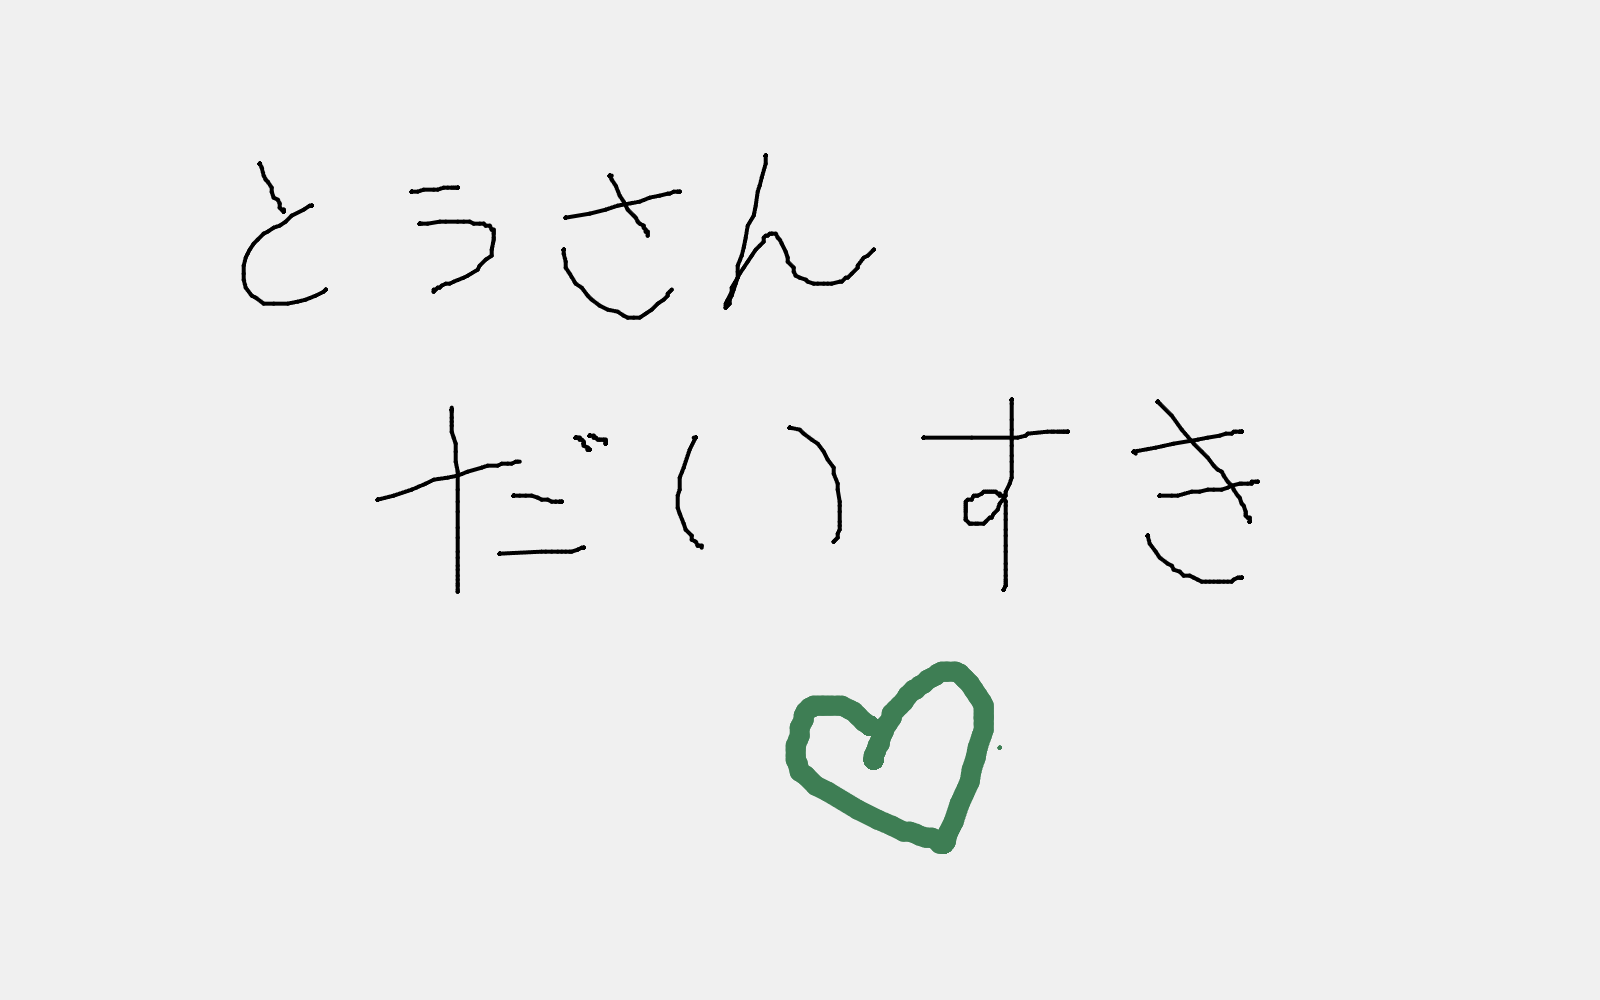 とうさん
だいすき